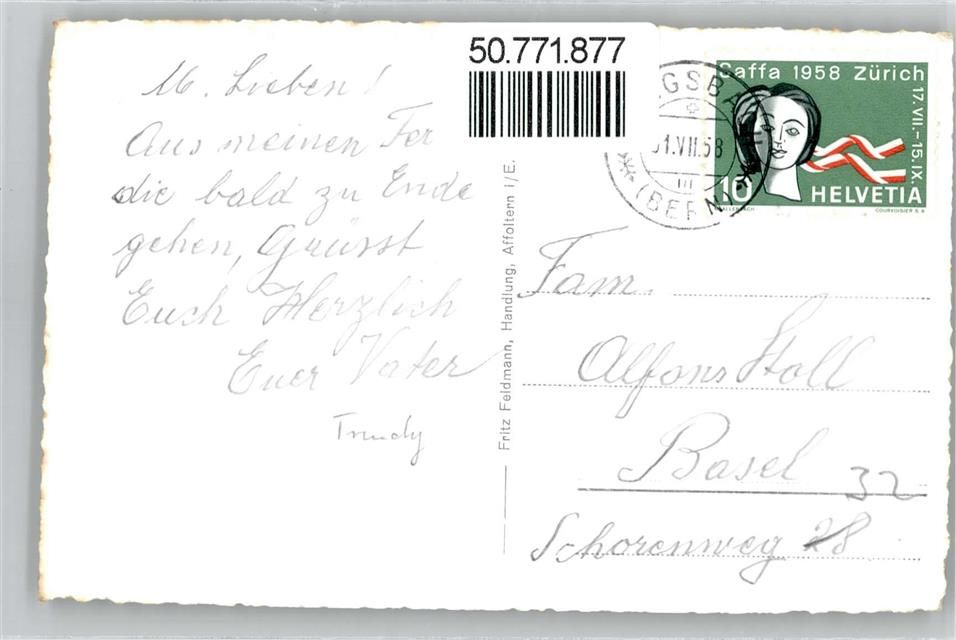 M. Lieben!
Aus meinen Fer
die bald zu Ende
gehen, Grüsst
Euch Herzlich
Euer Vater
Trudy
50.771.877
GSBA
31.VII.58
(BERN)
Saffa 1958 Zürich
17.VII.-15.IX.
10 HELVETIA
COURVOISIER S.A.
Fritz Feldmann, Handlung, Affoltern i/E.
Fam.
Alfons Stoll
Basel 32
Schorenweg 28